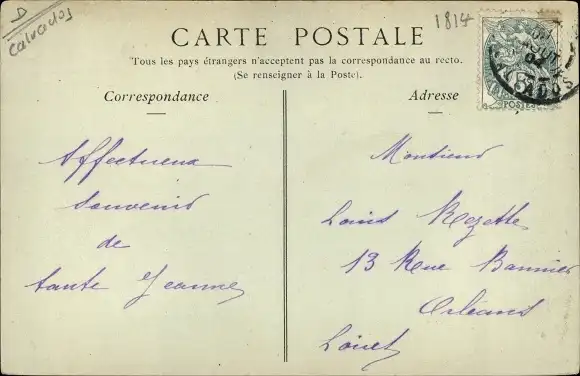 D
Calvados
1814
CARTE POSTALE
Tous les pays étrangers n'acceptent pas la correspondance au recto.
(Se renseigner à la Poste).
Correspondance
Adresse
Affectueux
Souvenir
de
tante Jeanne
Monsieur
Louis Rezette
13 Rue Bannier
Orléans
Loiret
AOUT
04
POSTES